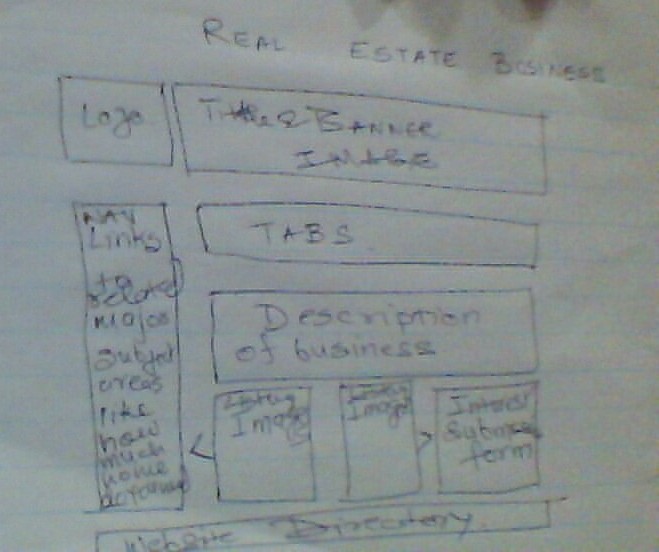 REAL ESTATE BUSINESS
Logo
Title & BANNER
IMAGE
NAV
Links
to
related
major
subject
areas
like
how
much
home
TABS
Description
of business
Image
Image
Interest
form
Website Directory